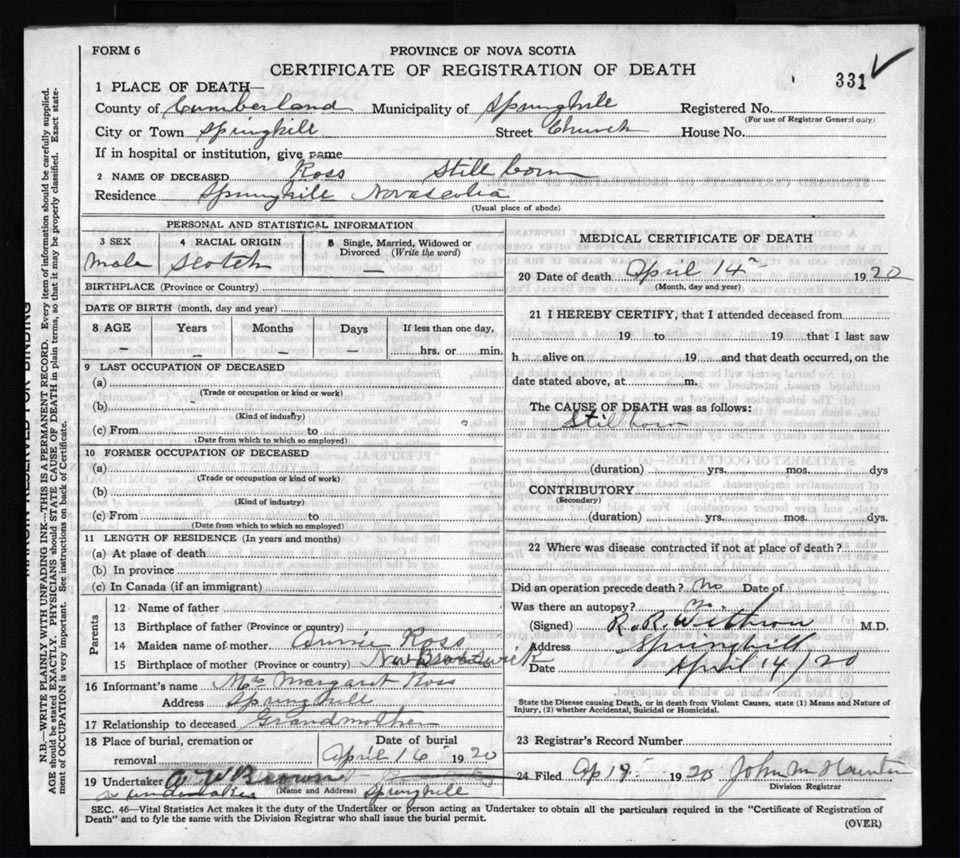 FORM 6
PROVINCE OF NOVA SCOTIA
CERTIFICATE OF REGISTRATION OF DEATH
331 ✓
1 PLACE OF DEATH—
County of Cumberland Municipality of Springhill Registered No.
(For use of Registrar General only)
City or Town Springhill Street Church House No.
If in hospital or institution, give name
2 NAME OF DECEASED Ross Still born
Residence Springhill Nova Scotia
(Usual place of abode)
PERSONAL AND STATISTICAL INFORMATION
3 SEX 4 RACIAL ORIGIN 5 Single, Married, Widowed or Divorced (Write the word)
Male Scotch —
BIRTHPLACE (Province or Country)
DATE OF BIRTH (month, day and year)
8 AGE Years Months Days If less than one day,
– – – – hrs. or min.
9 LAST OCCUPATION OF DECEASED
(a)
(Trade or occupation or kind or work)
(b)
(Kind of industry)
(c) From to
(Date from which to which so employed)
10 FORMER OCCUPATION OF DECEASED
(a)
(Trade or occupation or kind of work)
(b)
(Kind of industry)
(c) From to
(Date from which to which so employed)
11 LENGTH OF RESIDENCE (In years and months)
(a) At place of death
(b) In province
(c) In Canada (if an immigrant)
Parents
12 Name of father
13 Birthplace of father (Province or country)
14 Maiden name of mother Annie Ross
15 Birthplace of mother (Province or country) New Brunswick
16 Informant's name Mrs Margaret Ross
Address Springhill
17 Relationship to deceased Grandmother
18 Place of burial, cremation or removal Date of burial
April 16 1920
19 Undertaker A W Brown
(Name and Address) Springhill
MEDICAL CERTIFICATE OF DEATH
20 Date of death April 14th 1920
(Month, day and year)
21 I HEREBY CERTIFY, that I attended deceased from
19 to 19 that I last saw
h alive on 19 and that death occurred, on the
date stated above, at m.
The CAUSE OF DEATH was as follows:
Stilborn
(duration) yrs. mos. dys
CONTRIBUTORY
(Secondary)
(duration) yrs. mos. dys.
22 Where was disease contracted if not at place of death?
Did an operation precede death? No Date of
Was there an autopsy? No.
(Signed) R. R. Withrow M.D.
Address Springhill
Date April 14/20
State the Disease causing Death, or in death from Violent Causes, state (1) Means and Nature of
Injury, (2) whether Accidental, Suicidal or Homicidal.
23 Registrar's Record Number
24 Filed 1920 John M
Division Registrar
SEC. 46—Vital Statistics Act makes it the duty of the Undertaker or person acting as Undertaker to obtain all the particulars required in the "Certificate of Registration of
Death" and to fyle the same with the Division Registrar who shall issue the burial permit.
(OVER)
N.B.—WRITE PLAINLY WITH UNFADING INK—THIS IS A PERMANENT RECORD. Every item of information should be carefully supplied.
AGE should be stated EXACTLY. PHYSICIANS should STATE CAUSE OF DEATH in plain terms, so that it may be properly classified. Exact state-
ment of OCCUPATION is very important. See instructions on back of Certificate.